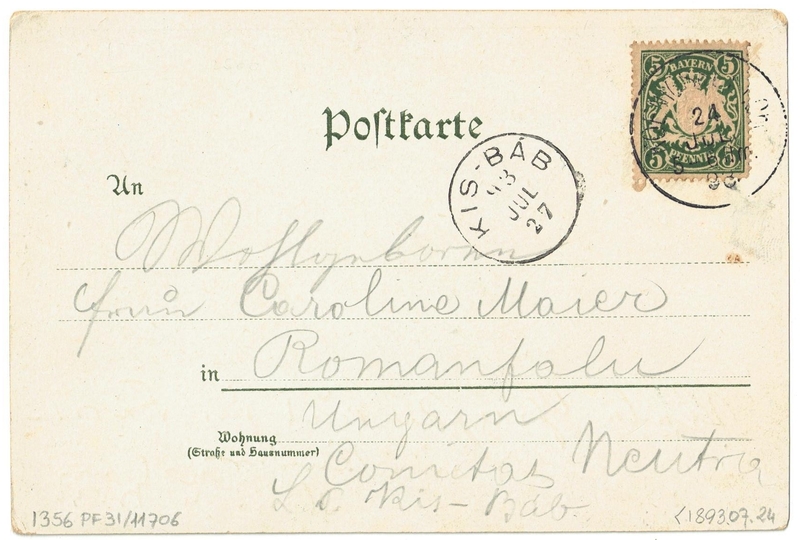 5 BAYERN 5
5 PFENNIG 5
24
JUL
Postkarte
KIS-BÁB
93
JUL
27
An
Wohlgeboren
Frau Caroline Maier
in Romanfalu
Ungarn
Wohnung
(Straße und Hausnummer)
Comitat Neutra
L. P. Kis-Báb.
1356 PF 31/11706
<1893.07.24